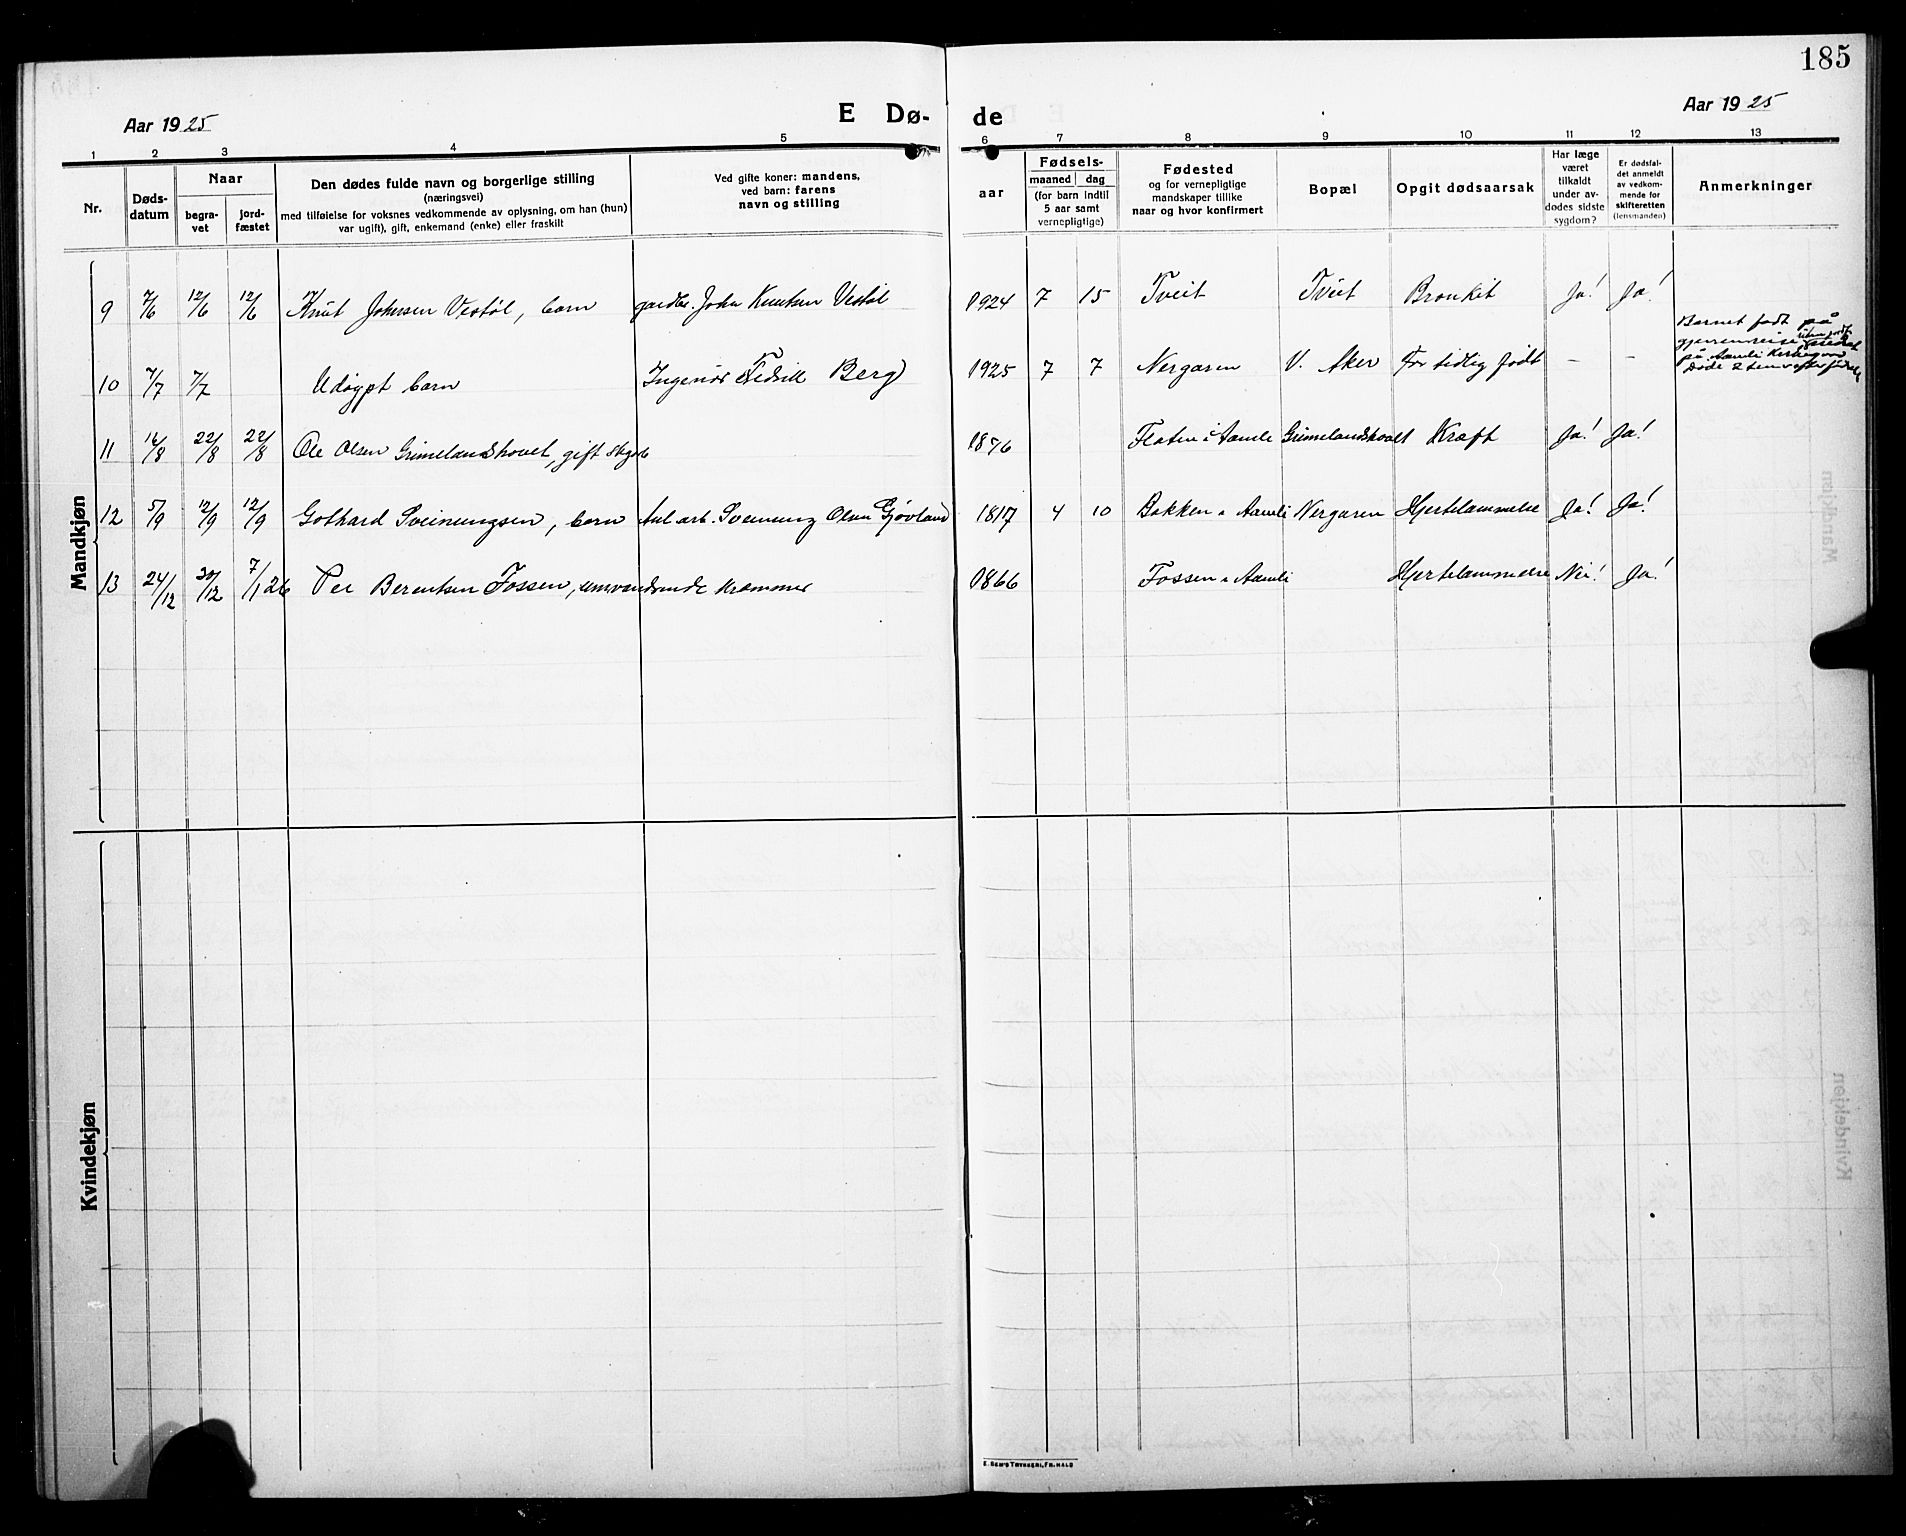 185
Aar 1925
E Dø-
de
Aar 1925
1 2 3 4 5 6 7 8 9 10 11 12 13
Nr.
Døds-
datum
Naar
begra-
vet
jord-
fæstet
Den dødes fulde navn og borgerlige stilling
(næringsvei)
med tilføielse for voksnes vedkommende av oplysning, om han (hun)
var ugift), gift, enkemand (enke) eller fraskilt
Ved gifte koner: mandens,
ved barn: farens
navn og stilling
aar
Fødsels-
maaned dag
(for barn indtil
5 aar samt
vernepligtige)
Fødested
og for vernepligtige
mandskaper tillike
naar og hvor konfirmert
Bopæl
Opgit dødsaarsak
Har læge
været
tilkaldt
under av-
dødes sidste
sygdom?
Er dødsfal-
det anmeldt
av vedkom-
mende for
skifteretten
(lensmanden)
Anmerkninger
Mandkjøn
9 7/6 12/6 12/6 Knut Johnsen Vestøl, barn gardbr. John Knutsen Vestøl 1924 7 15 Tveit Tveit Bronkit Ja! Ja!
10 7/7 7/7 Udøypt barn Ingeniør Fredrik Berg 1925 7 7 Nergaren V. Aker For tidlig født – –
Barnet født på
på Aamli Kirkegaard
Døde 2 timer efter fødsel
11 16/8 22/8 22/8 Ole Olsen Grimelandshovet, gift 1876 Flaten i Aamli Grimelandshovet Kræft Ja! Ja!
12 5/9 12/9 12/9 Gothard Sveinungsen, barn Anl. arb. Sveinung Olsen Gjøvland 1817 4 10 Bakken i Aamli Nergaren Hjertelammelse Ja! Ja!
13 24/12 30/12 7/1 26 Per Berentsen Fossen, omvandrende kræmmer 1866 Fossen i Aamli Hjertelammelse Nei! Ja!
Kvindekjøn
E. SEM'S TRYKKERI, FR.HALD